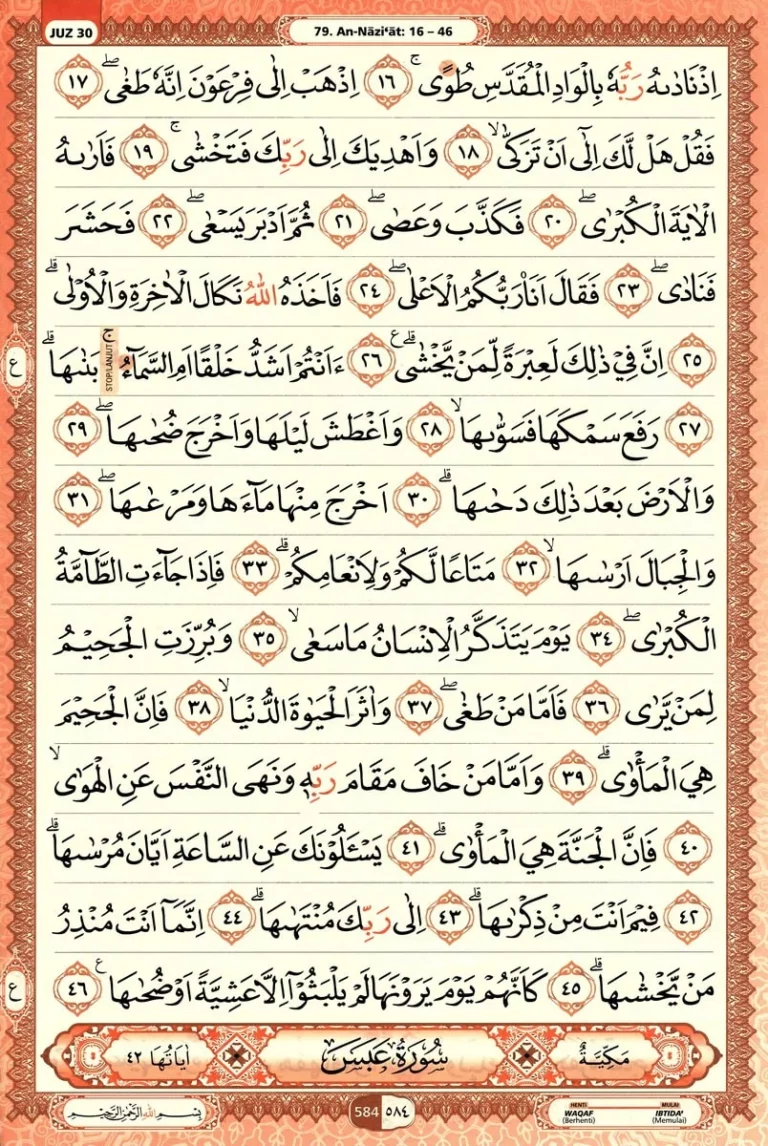 JUZ 30
79. An-Nāzi‘āt: 16 – 46
اِذْ نَادٰىهُ رَبُّهٗ بِالْوَادِ الْمُقَدَّسِ طُوًىۚ ١٦ اِذْهَبْ اِلٰى فِرْعَوْنَ اِنَّهٗ طَغٰىۖ ١٧
فَقُلْ هَلْ لَّكَ اِلٰٓى اَنْ تَزَكّٰىۙ ١٨ وَاَهْدِيَكَ اِلٰى رَبِّكَ فَتَخْشٰىۚ ١٩ فَاَرٰىهُ
الْاٰيَةَ الْكُبْرٰىۖ ٢٠ فَكَذَّبَ وَعَصٰىۖ ٢١ ثُمَّ اَدْبَرَ يَسْعٰىۖ ٢٢ فَحَشَرَ
فَنَادٰىۖ ٢٣ فَقَالَ اَنَا۠ رَبُّكُمُ الْاَعْلٰىۖ ٢٤ فَاَخَذَهُ اللّٰهُ نَكَالَ الْاٰخِرَةِ وَالْاُوْلٰىۗ
٢٥ اِنَّ فِيْ ذٰلِكَ لَعِبْرَةً لِّمَنْ يَّخْشٰىۗ ع ٢٦ ءَاَنْتُمْ اَشَدُّ خَلْقًا اَمِ السَّمَاۤءُۚ STOP/LANJUT بَنٰىهَاۗ
ع
٢٧ رَفَعَ سَمْكَهَا فَسَوّٰىهَاۙ ٢٨ وَاَغْطَشَ لَيْلَهَا وَاَخْرَجَ ضُحٰىهَاۖ ٢٩
وَالْاَرْضَ بَعْدَ ذٰلِكَ دَحٰىهَاۗ ٣٠ اَخْرَجَ مِنْهَا مَاۤءَهَا وَمَرْعٰىهَاۖ ٣١
وَالْجِبَالَ اَرْسٰىهَاۙ ٣٢ مَتَاعًا لَّكُمْ وَلِاَنْعَامِكُمْۗ ٣٣ فَاِذَا جَاۤءَتِ الطَّاۤمَّةُ
الْكُبْرٰىۖ ٣٤ يَوْمَ يَتَذَكَّرُ الْاِنْسَانُ مَا سَعٰىۙ ٣٥ وَبُرِّزَتِ الْجَحِيْمُ
لِمَنْ يَّرٰى ٣٦ فَاَمَّا مَنْ طَغٰىۖ ٣٧ وَاٰثَرَ الْحَيٰوةَ الدُّنْيَاۙ ٣٨ فَاِنَّ الْجَحِيْمَ
هِيَ الْمَأْوٰىۗ ٣٩ وَاَمَّا مَنْ خَافَ مَقَامَ رَبِّهٖ وَنَهَى النَّفْسَ عَنِ الْهَوٰىۙ
٤٠ فَاِنَّ الْجَنَّةَ هِيَ الْمَأْوٰىۗ ٤١ يَسْـَٔلُوْنَكَ عَنِ السَّاعَةِ اَيَّانَ مُرْسٰىهَاۗ
٤٢ فِيْمَ اَنْتَ مِنْ ذِكْرٰىهَاۗ ٤٣ اِلٰى رَبِّكَ مُنْتَهٰىهَاۗ ٤٤ اِنَّمَآ اَنْتَ مُنْذِرُ
مَنْ يَّخْشٰىهَاۗ ٤٥ كَاَنَّهُمْ يَوْمَ يَرَوْنَهَا لَمْ يَلْبَثُوْٓا اِلَّا عَشِيَّةً اَوْ ضُحٰىهَا ع ٤٦
ع
مَكِّيَّةٌ سُوْرَةُ عَبَسَ اٰيَاتُهَا ٤٢
بِسْمِ اللّٰهِ الرَّحْمٰنِ الرَّحِيْمِ
584 ٥٨٤
HENTI MULAI
WAQAF IBTIDA'
(Berhenti) (Memulai)